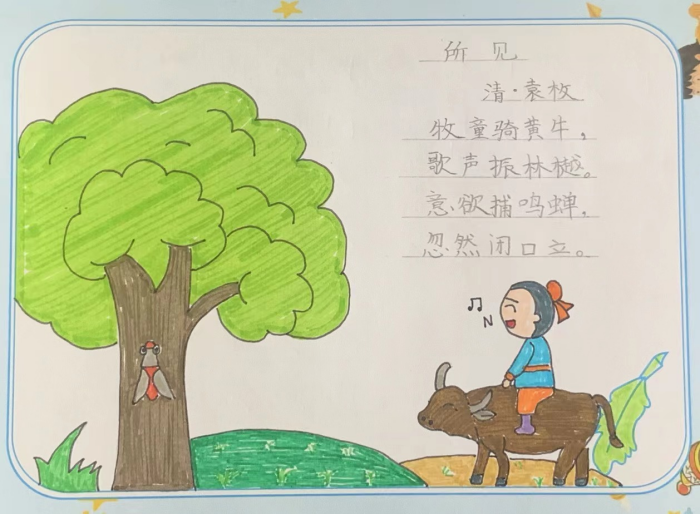 所见
清·袁枚
牧童骑黄牛，
歌声振林樾。
意欲捕鸣蝉，
忽然闭口立。
N